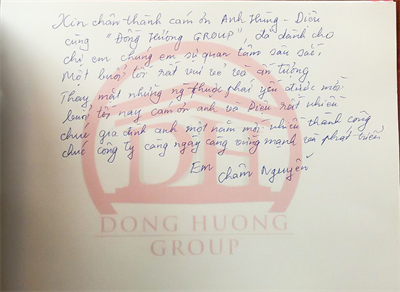 Xin chân thành cám ơn Anh Hùng - Diều
cùng "Đồng Hương GROUP" đã dành cho
chị em chúng em sự quan tâm sâu sắc.
Một buổi tối rất vui vẻ và ấn tượng
Thay mặt những ng thuộc phái yếu được mời
buổi tối nay cám ơn anh và Diều rất nhiều
chúc gia đình anh một năm mới nhiều thành công
chúc công ty càng ngày càng vững mạnh và phát triển
Em
Châm Nguyễn
DH
DONG HUONG
GROUP